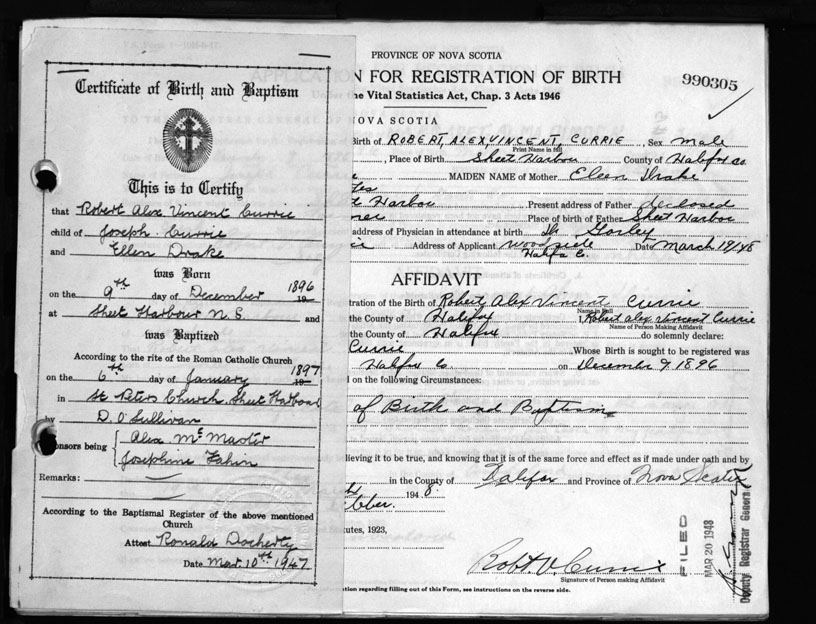 Certificate of Birth and Baptism
This is to Certify
that Robert Alex Vincent Currie
child of Joseph Currie
and Ellen Drake
was Born
on the 9th day of December 1896
at Sheet Harbour N.S and
was Baptized
According to the rite of the Roman Catholic Church
on the 6th day of January 1897
in St Peters Church, Sheet Harbour
by D. O'Sullivan
onsors being Alex McMaster
Josephine
Remarks:
According to the Baptismal Register of the above mentioned
Church
Attest Ronald Docherty
Date Mar 10th 1947
PROVINCE OF NOVA SCOTIA
N FOR REGISTRATION OF BIRTH
990305
he Vital Statistics Act, Chap. 3 Acts 1946
NOVA SCOTIA
Birth of ROBERT, ALEX, VINCENT, CURRIE, Sex male
Print Name in full
, Place of Birth Sheet Harbou County of Halifax Co
MAIDEN NAME of Mother Eleen Drake
t Harbou Present address of Father
Place of birth of Father Sheet Harboe
address of Physician in attendance at birth Dr
Address of Applicant woodside Date March 19/48
Halifa Co.
AFFIDAVIT
tration of the Birth of Robert Alex Vincent Currie
Name in Full
the County of Halifax , Robert alex Vincent Currie
Name of Person Making Affidavit
the County of Halifax do solemnly declare:
Currie Whose Birth is sought to be registered was
Halifax Co. on December 9. 1896
on the following Circumstances:
of Birth and Baptism
lieving it to be true, and knowing that it is of the same force and effect as if made under oath and by
in the County of Halifax and Province of Nova Scotia
1948.
tutes, 1923,
FILED
MAR 20 1948
Deputy Registrar General
Robt V. Currie
Signature of Person making Affidavit
tion regarding filling out of this Form, see instructions on the reverse side.